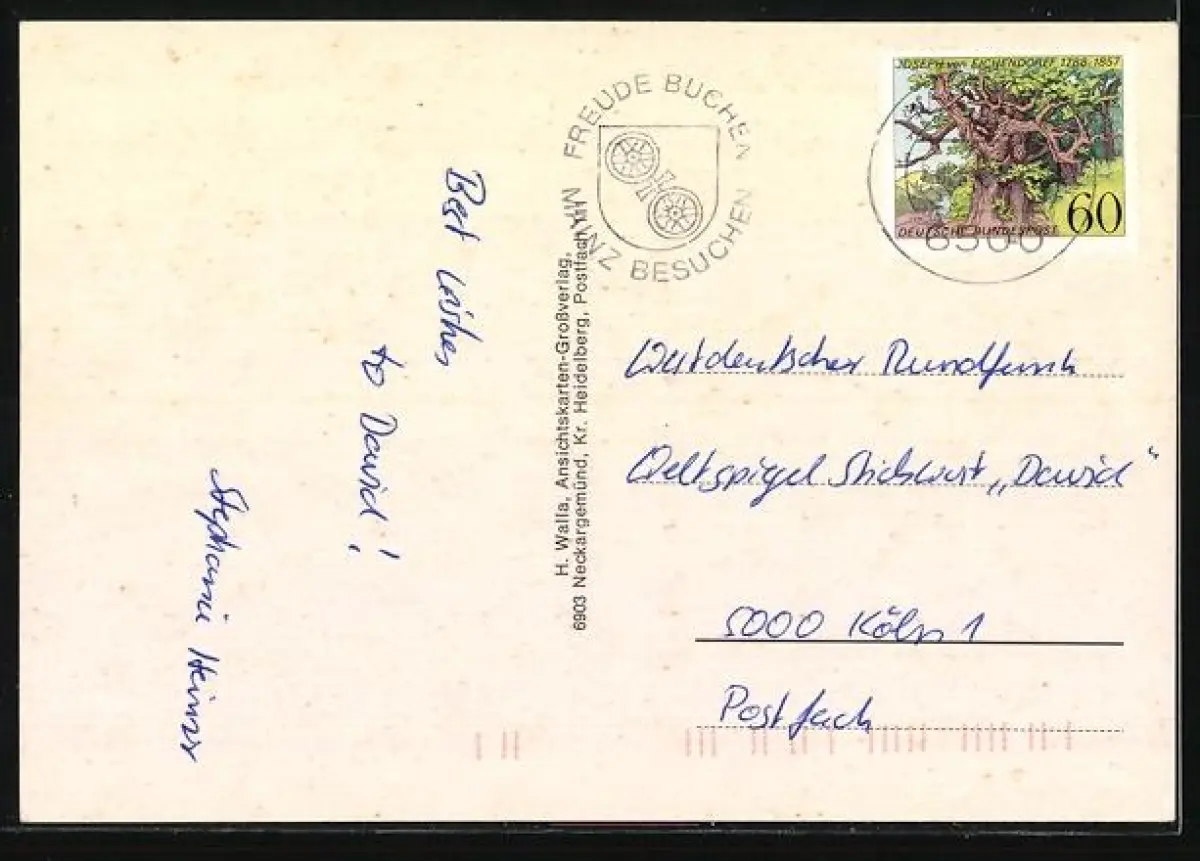 Best wishes
to David!
Stephanie
H. Walla, Ansichtskarten-Großverlag,
6903 Neckargemünd, Kr. Heidelberg, Postfach
FREUDE BUCHEN
MAINZ BESUCHEN
JOSEPH von EICHENDORFF 1788-1857
DEUTSCHE BUNDESPOST
60
6500
Westdeutscher Rundfunk
Weltspiegel Stichwort „David“
5000 Köln 1
Postfach